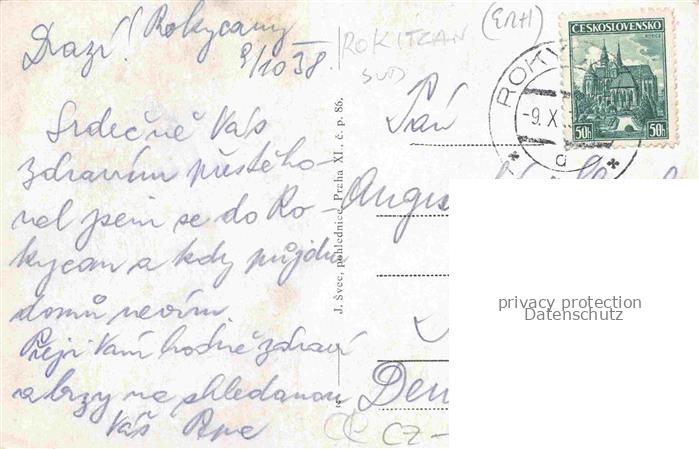 Drazí! Rokycany
9/10 38.
Srdečně Vás
zdravím přestěho-
val jsem se do Ro-
kycan a kdy půjdu
domů nevím.
Přeji Vám hodně zdraví
a brzy na shledanou
Váš
ROKITZAN
SUD
J. Švec, pohlednice, Praha XI., č. p. 86.
ČESKOSLOVENSKO
KOŠICE
50h 50h
ROKY
-9. X
a
Pán
CZ-
privacy protection
Datenschutz